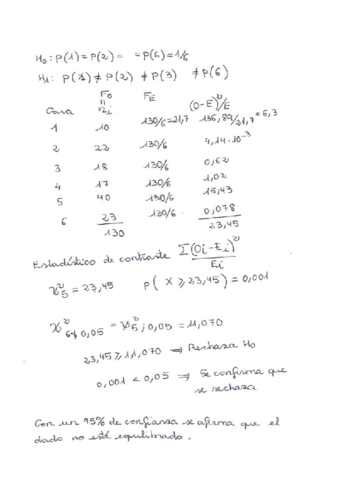 H₀: P(1) = P(2) = = P(6) = 1/6
H₁: P(1) ≠ P(2) ≠ P(3) ≠ P(6)
Cara F₀ = nᵢ FE (O-E)²/E
1 10 130/6=21,7 136,89/21,7=6,3
2 22 130/6 4,14·10⁻³
3 18 130/6 0,62
4 17 130/6 1,02
5 40 130/6 15,43
6 23 130/6 0,078
130 23,45
Estadístico de contraste Σ(Oi-Ei)²/Ei
χ²₅ = 23,45 P(X ⩾ 23,45) = 0,001
χ²₆₋₁;0,05 = χ²₅;0,05 = 11,070
23,45 ⩾ 11,070 ⟹ Rechaza H₀
0,001 < 0,05 ⟹ Se confirma que
se rechaza
Con un 95% de confianza se afirma que el
dado no está equilibrado.